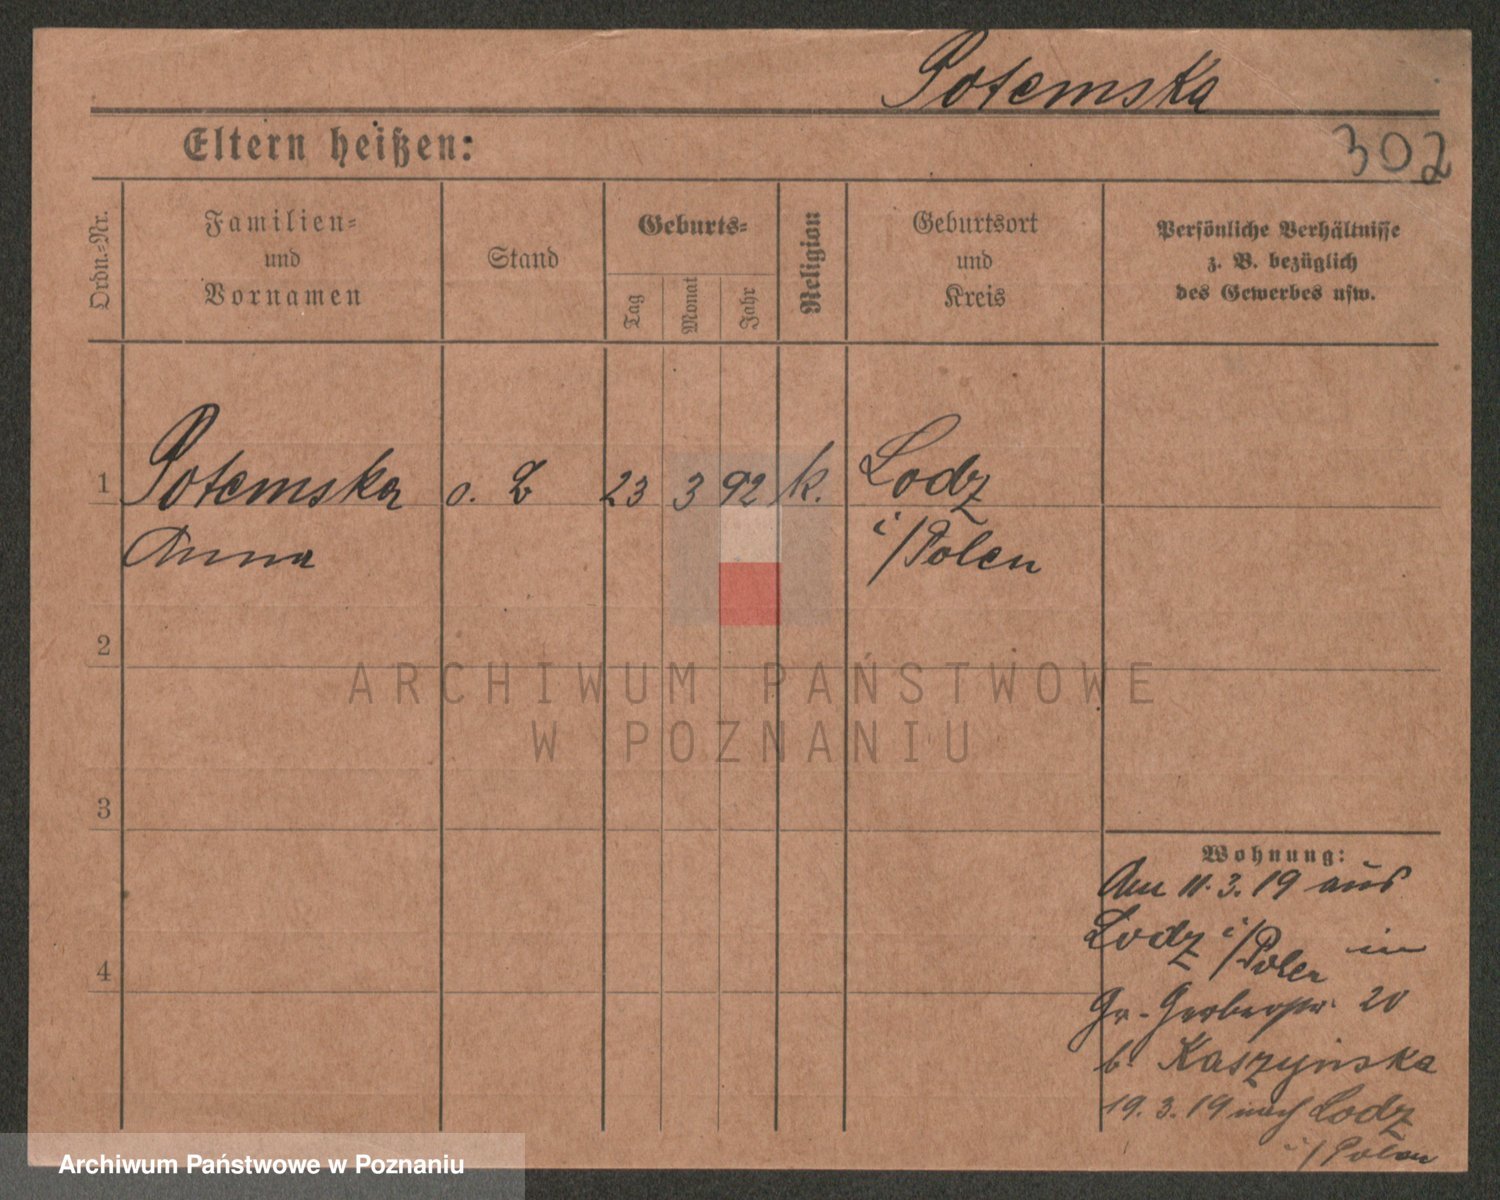 Potemska
302
Eltern heißen:
Ordn.-Nr.
Familien-
und
Vornamen
Stand
Geburts-
Tag
Monat
Jahr
Religion
Geburtsort
und
Kreis
Persönliche Verhältnisse
z. B. bezüglich
des Gewerbes usw.
1 Potemska o. B 23 3 92 k. Lodz
Anna i/Polen
2
3
4
Wohnung:
Am 11.3.19 aus
Lodz i/Polen in
Gr. Gerberstr. 20
b. Kaszyńska
19.3.19 nach Lodz
i/Polen
ARCHIWUM PAŃSTWOWE
W POZNANIU
Archiwum Państwowe w Poznaniu